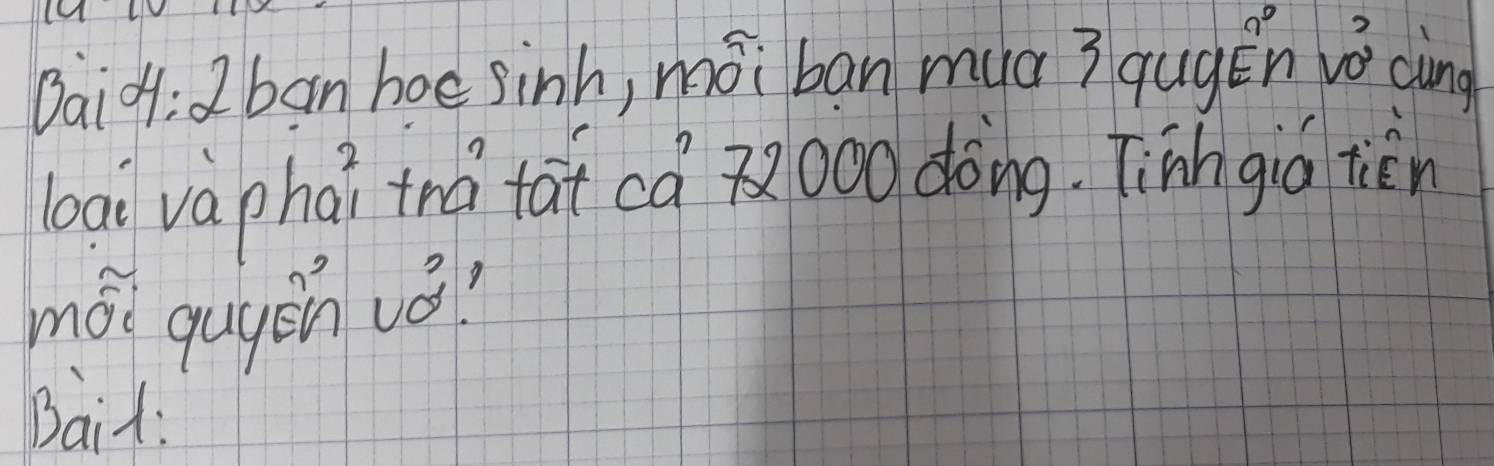 Bài 4: 2 bạn học sinh, mỗi bạn mua 3 quyển vở cùng
loại và phải trả tất cả 72000 đồng. Tính giá tiền
mỗi quyển vở?
Bài 1: